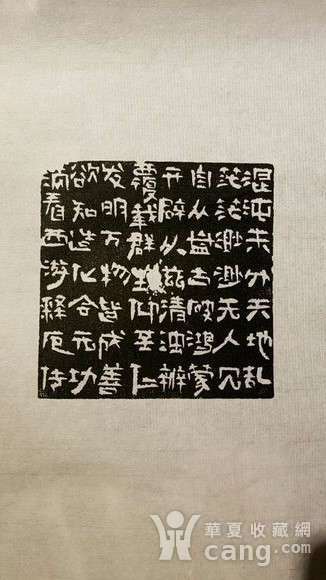 混沌未分天地乱
茫茫渺渺无人见
自从盘古破鸿蒙
开辟从兹清浊辨
覆载群生仰至仁
发明万物皆成善
欲知造化合元功
须看西游释厄传
华夏收藏網
cang.com